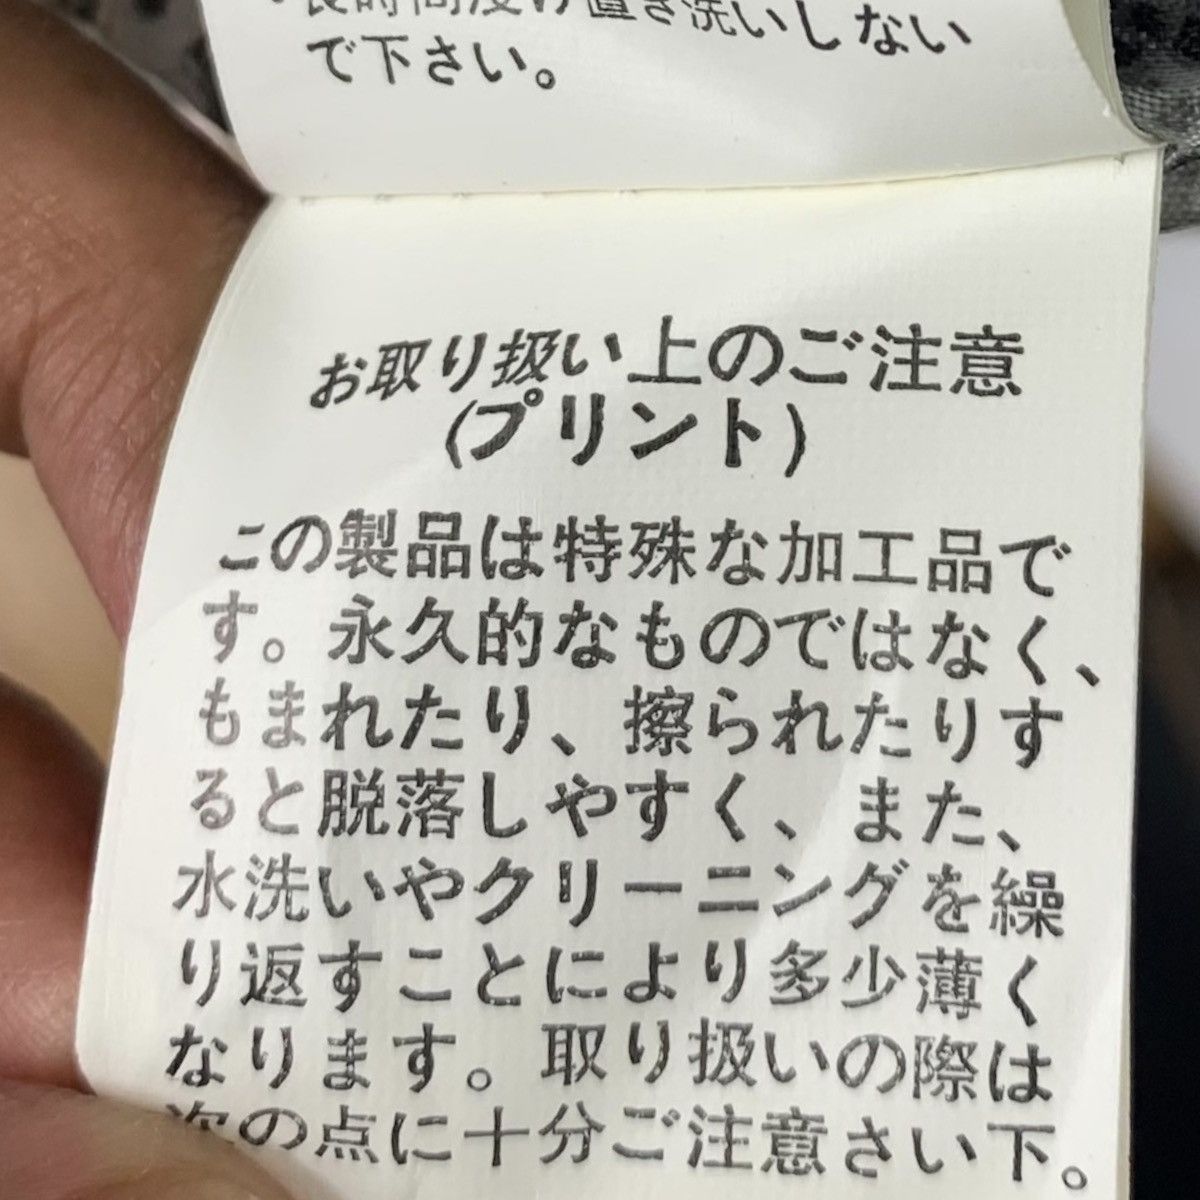 ・長時間浸け置き洗いしない
で下さい。
お取り扱い上のご注意
(プリント)
この製品は特殊な加工品で
す。永久的なものではなく、
もまれたり、擦られたりす
ると脱落しやすく、また、
水洗いやクリーニングを繰
り返すことにより多少薄く
なります。取り扱いの際は
次の点に十分ご注意さい下。